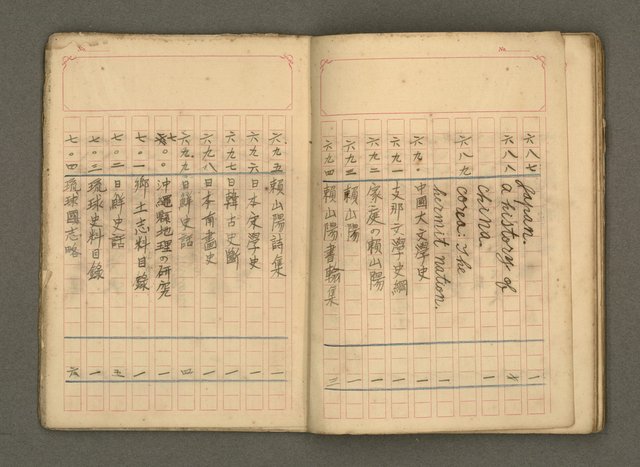 No.
六八七 Japan. 一
六八八 a history of
china. 一
六八九 corea: The
hermit nation. 一
六九〇 中國大文學史 一
六九一 支那文學史綱 一
六九二 家庭の頼山陽 一
六九三 頼山陽 一
六九四 頼山陽書翰集 三
No.
六九五 頼山陽詩集 一
六九六 日本宋學史 一
六九七 日韓古史斷 一
六九八 日本南畫史 一
六九九 日鮮史話 四
七〇〇 沖繩縣地理の研究 一
七〇一 鄉土志料目錄 一
七〇二 日鮮史話 五
七〇三 琉球史料目錄 一
七〇四 琉球國志略 六